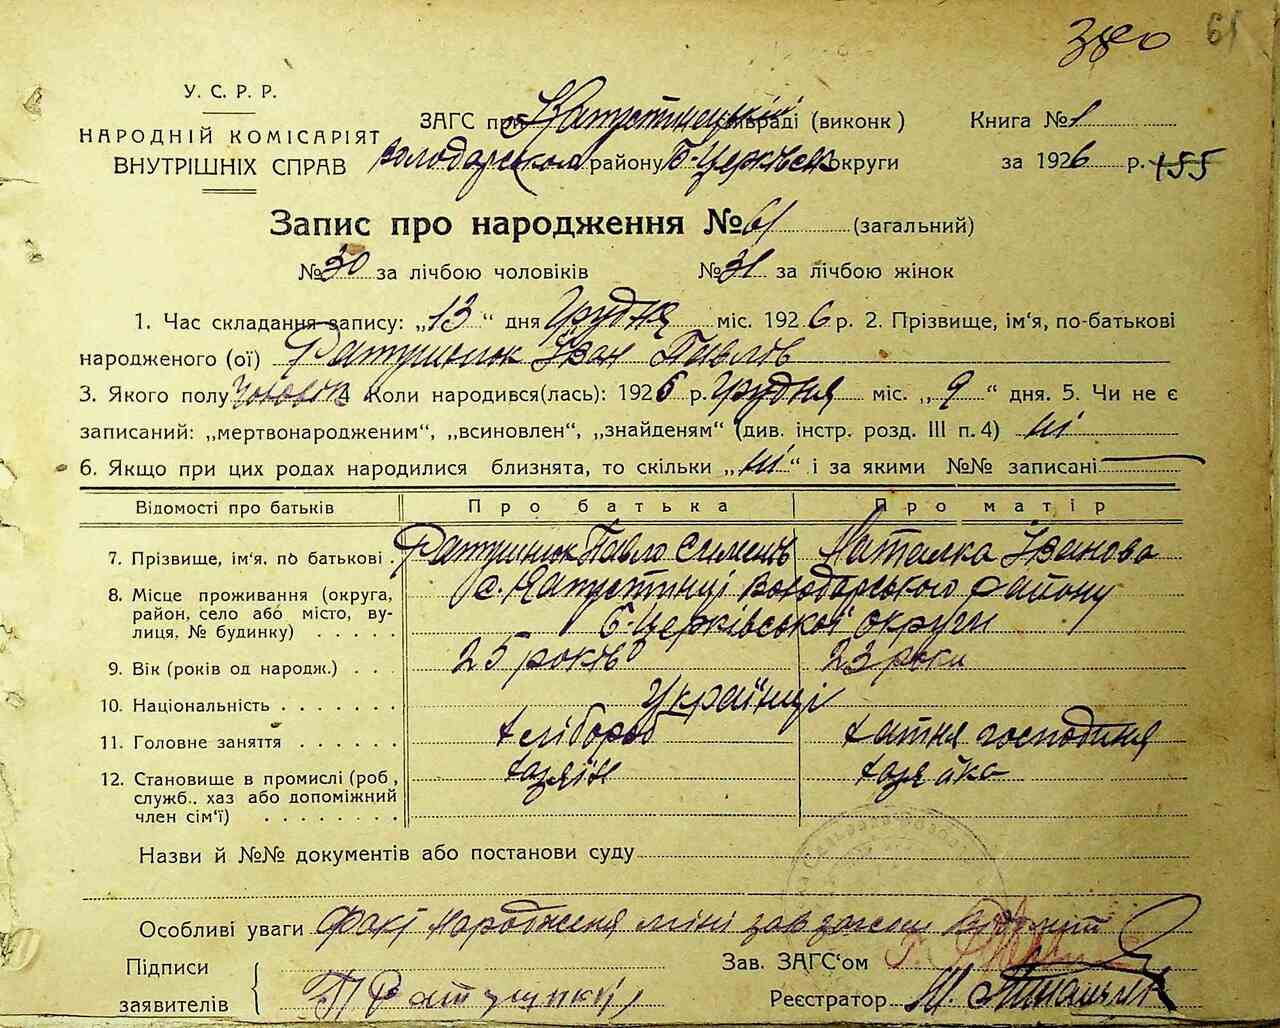 380 61
У. С. Р. Р.
НАРОДНІЙ КОМІСАРІЯТ
ВНУТРІШНІХ СПРАВ
ЗАГС при Капустинській раді (виконк) Книга № 1
Володарськом району Б-Церківськ округи за 1926 р. 455
Запис про народження № 61 (загальний)
№ 30 за лічбою чоловіків № 31 за лічбою жінок
1. Час складання запису: „13“ дня Грудня міс. 1926 р. 2. Прізвище, ім'я, по-батькові
народженого (ої) Ратушнюк Іван Павлів
3. Якого полу чоловік 4 Коли народився(лась): 1926 р. Грудня міс. „9“ дня. 5. Чи не є
записаний: „мертвонародженим“, „всиновлен“, „знайденям“ (див. інстр. розд. III п. 4) ні
6. Якщо при цих родах народилися близнята, то скільки „ні“ і за якими №№ записані
Відомості про батьків Про батька Про матір
7. Прізвище, ім'я, по батькові Ратушнюк Павло Наталка Іванова
8. Місце проживання (округа, район, село або місто, вулиця, № будинку) с. Капустинці Володарського району
Б-Церківської округи
9. Вік (років од народж.) 25 років 23 роки
10. Національність Українці
11. Головне заняття хлібороб хатня господиня
12. Становище в промислі (роб, служб., хаз або допоміжний член сім'ї) хазяїн хазяйка
Назви й №№ документів або постанови суду
Особливі уваги Факт народження мені зав загсом відомий
Підписи
заявителів П Ратушнюк
Зав. ЗАГС'ом
Реєстратор